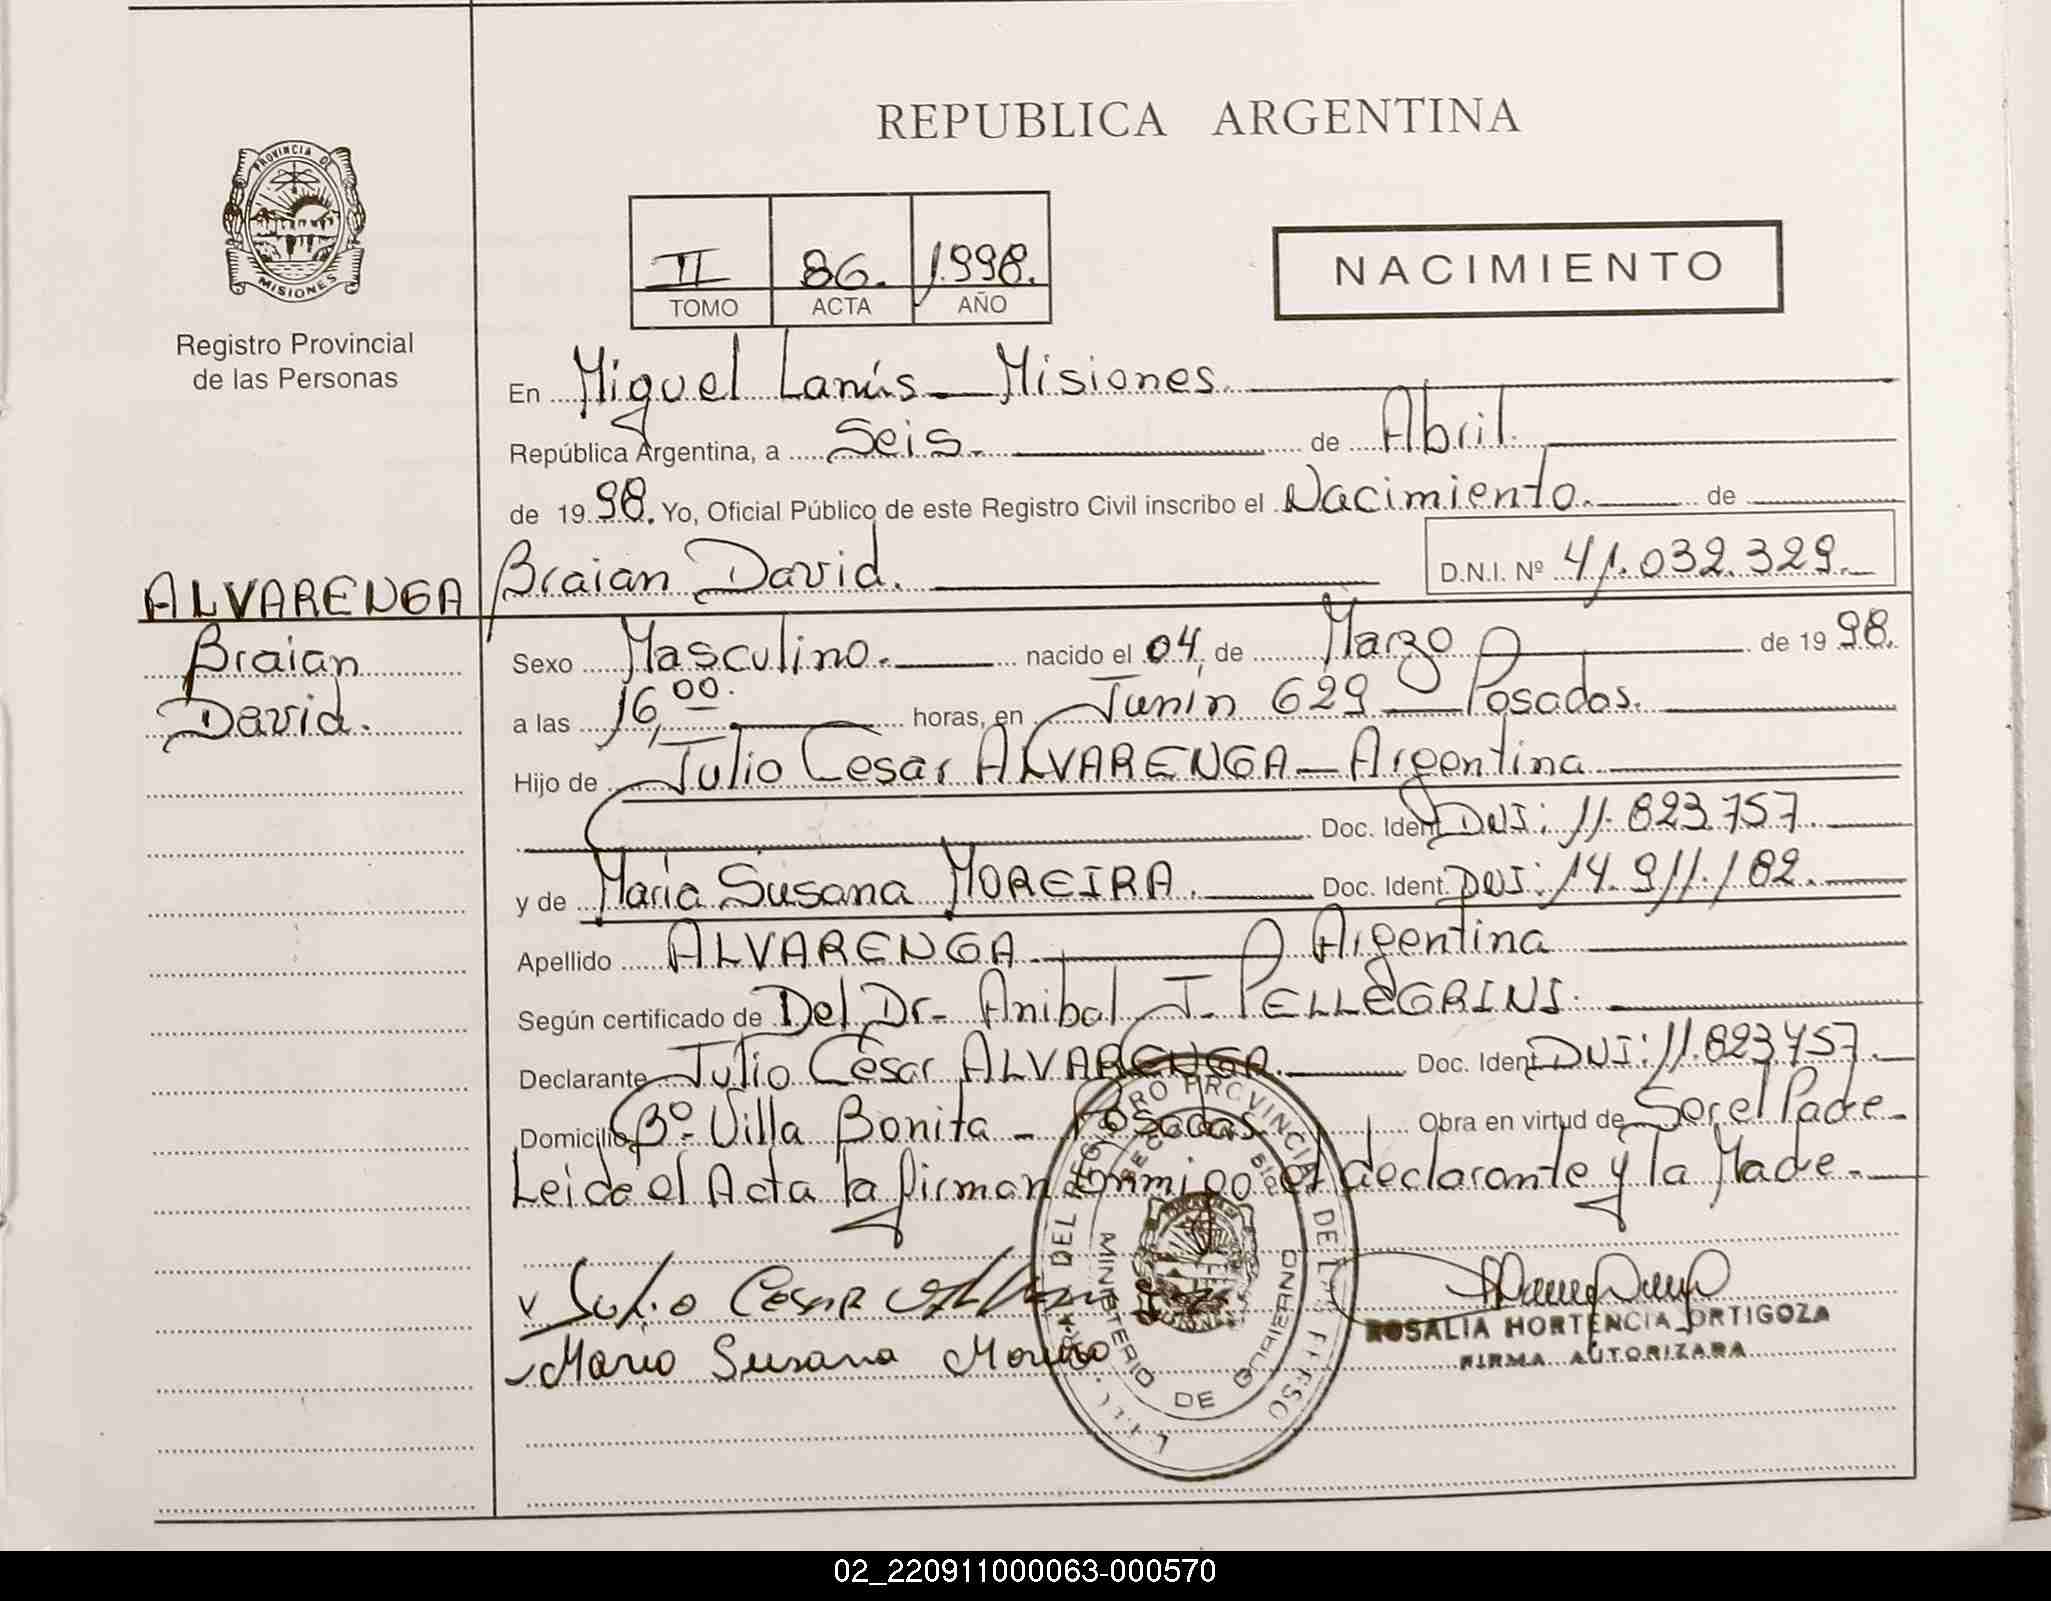 REPUBLICA ARGENTINA
PROVINCIA DE
MISIONES
Registro Provincial
de las Personas
II 86. 1998.
TOMO ACTA AÑO
NACIMIENTO
En Miguel Lanús - Misiones.
República Argentina, a Seis. de Abril.
de 1998. Yo, Oficial Público de este Registro Civil inscribo el Nacimiento. de
ALVARENGA Braian David. D.N.I. Nº 41.032.329.
Braian
David.
Sexo Masculino. nacido el 04, de Marzo de 1998.
a las 16,00. horas, en Junin 629 - Posadas.
Hijo de Julio Cesar ALVARENGA - Argentina
Doc. Ident. DNI: 11.823.757.
y de María Susana MOREIRA. Doc. Ident. DNI: 14.911.182.
Apellido ALVARENGA Argentina
Según certificado de Del Dr- Anibal J. PELLEGRINI.
Declarante Julio César ALVARENGA. Doc. Ident. DNI: 11.823.757.
Domicilio Bº- Villa Bonita - Posadas. Obra en virtud de Ser el Padre-
Leida el Acta la firman conmigo el declarante y la Madre-
Julio Cesar
Maria Susana Moreira
ROSALIA HORTENCIA ORTIGOZA
FIRMA AUTORIZARA
MINISTERIO DE GOBIERNO
02_220911000063-000570